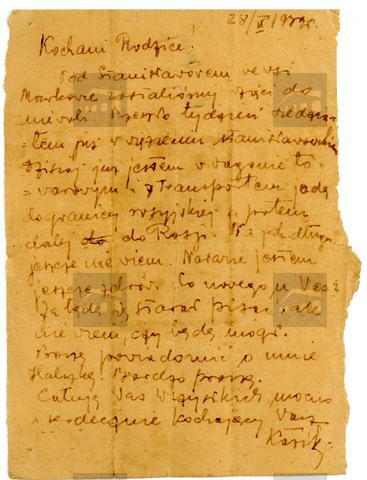 28/X 1939r.
Kochani Rodzice!
Pod Stanisławowem we wsi
zostaliśmy wzięci do
niewoli. tydzień siedzia-
łem już w więzieniu stanisławowskim
Dzisiaj już jestem w wagonie to-
warowym i z transportem jadę
do granicy rosyjskiej a potem
dalej do Rosji. Na jak długo
jeszcze nie wiem. Narazie jestem
jeszcze zdrów. Co nowego u Was?
Ja będę się starał pisać, ale
nie wiem, czy będę mógł.
Proszę powiadomić o mnie
Halinkę. Bardzo proszę.
Całuję Was wszystkich mocno
i serdecznie kochający Was
Kazik.